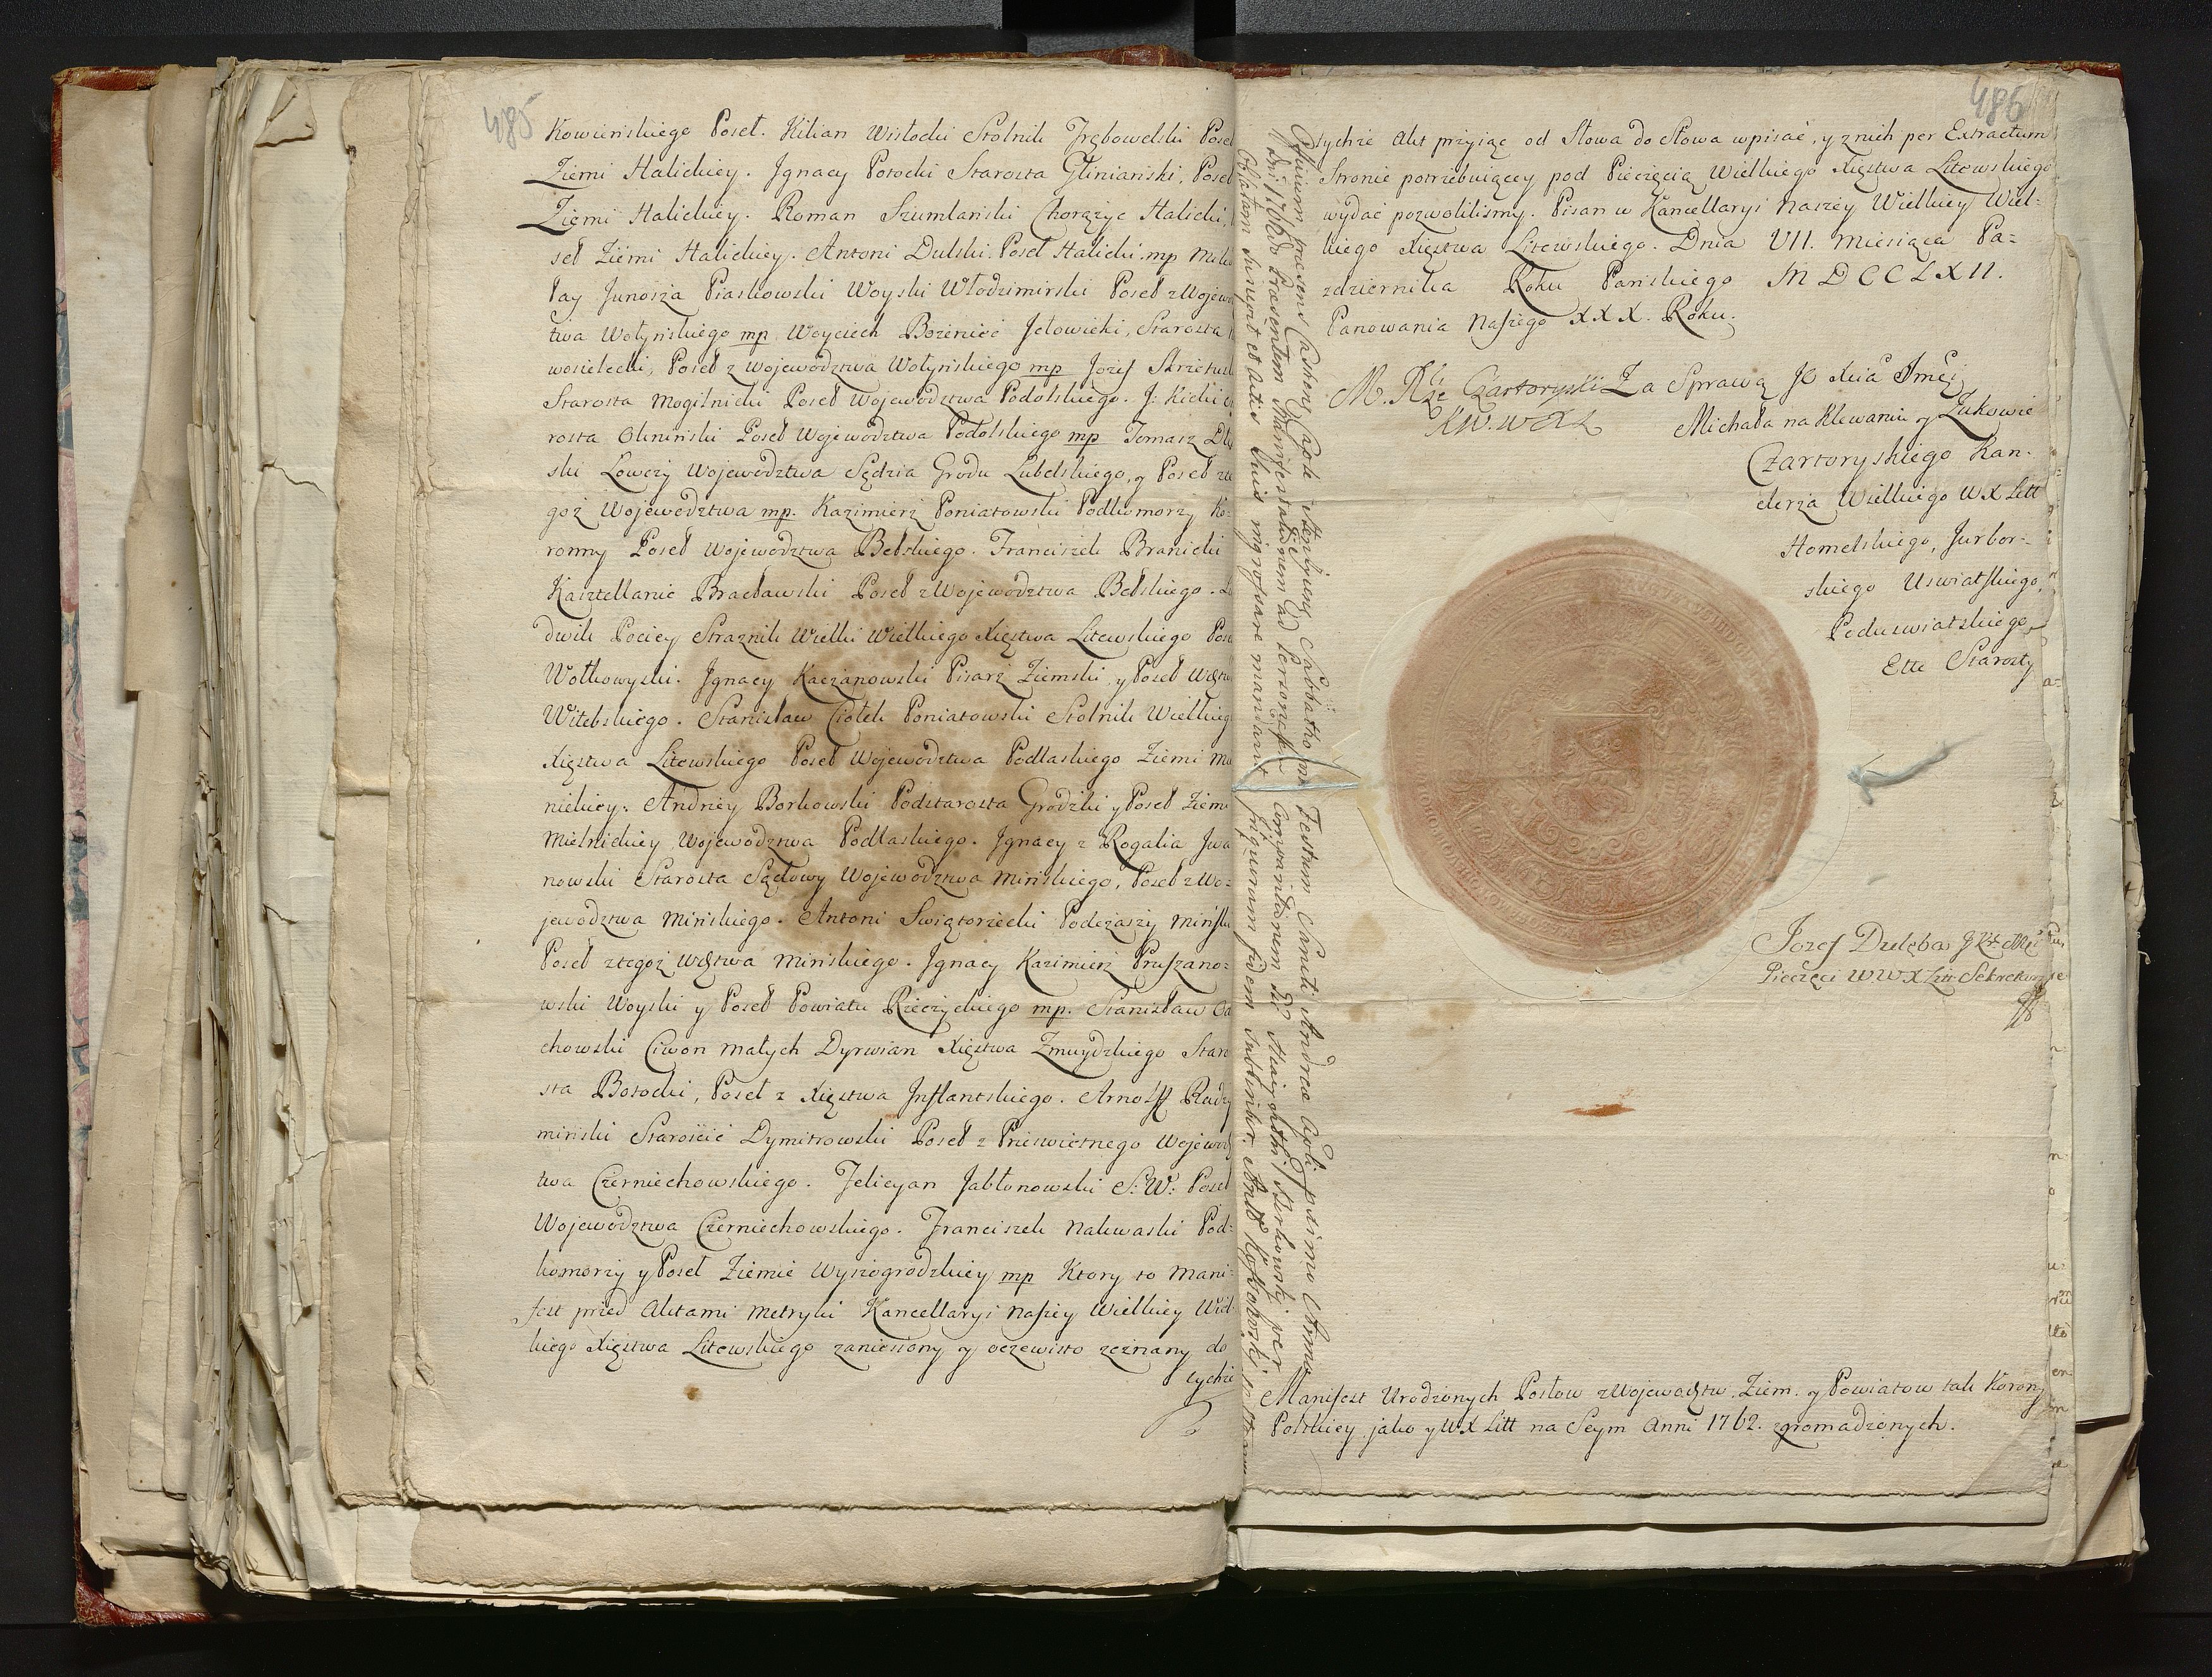 485
Kowieńskiego Poseł. Kilian Wisłocki Stolnik Trębowelski Poseł
Ziemi Halickiey. Jgnacy Potocki Starosta Gliniański, Poseł
Ziemi Halickiey. Roman Szumlański Chorążyc Halicki,
seł Ziemi Halickiey. Antoni Dulski Poseł Halicki mp
łay Junosza Piaskowski Woyski Włodzimirski Poseł z Wojewo
twa Wołyńskiego mp Woyciech Bożeniec Jełowicki, Starosta
wosielecki, Poseł z Wojewodztwa Wołyńskiego mp Jozef
Starosta Mogilnicki Poseł Wojewodztwa Podolskiego. J: Kicki
rosta Okniński Poseł Wojewodztwa Podolskiego mp Tomasz
ski Łowczy Wojewodztwa Sędzia Grodu Lubelskiego, y Poseł
goż Wojewodztwa mp. Kazimierz Poniatowski Podkomorzy Ko-
ronny Poseł Wojewodztwa Bełskiego. Franciszek Branicki
Kasztellanic Bracławski Poseł z Wojewodztwa Bełskiego.
dwik Pociey Straznik Wielki Wielkiego Xięstwa Litewskiego
Wołkowyski. Jgnacy Kaczanowski Pisarz Ziemski, y Poseł
Witebskiego. Stanisław Ciołek Poniatowski Stolnik Wielkieg
Xięstwa Litewskiego Poseł Wojewodztwa Podlaskiego Ziemi
nickiey. Andrzey Borkowski Podstarosta Grodzki y Poseł Ziemi
Mielnickiey Wojewodztwa Podlaskiego. Jgnacy z Rogalia Jwa
nowski Starosta Sądowy Wojewodztwa Mińskiego, Poseł z Wo-
jewodztwa Mińskiego. Antoni Swiętorzecki Podczaszy Mińsk
Poseł z tegoż Wdztwa Mińskiego. Jgnacy Kazimierz Pruszano-
wski Woyski y Poseł Powiatu Rzeczyckiego mp. Stanisław
chowski Ciwon Małych Dyrwian Xięstwa Zmuydzkiego Staro
sta Botocki, Poseł z Xięstwa Jnflantskiego. Arnolff Radzy
miński Starościć Dymitrowski Poseł z Prześwietnego Wojewodz
twa Czerniechowskiego. Felicyan Jabłonowski S: W: Poseł
Wojewodztwa Czerniechowskiego. Franciszek Nakwaski Pod-
komorzy y Poseł Ziemie Wyszogrodzkiey mp Ktory to Mani-
fest przed Aktami Metryki Kancellaryi Naszey Wielkiey Wiel
kiego Xięstwa Litewskiego zaniesiony y oczewisto zeznany do
tychże
486
tychże Akt przyiąc od Słowa do Słowa wpisać, y z nich per Extractum
Stronie potrzebuiącey pod Pieczęcią Wielkiego Xięstwa Litewskiego
wydać pozwoliliśmy. Pisan w Kancellaryi Naszey Wielkiey Wiel-
kiego Xięstwa Litewskiego. Dnia VII. Miesiąca Pa-
zdziernika Roku Pańskiego MDCCLXII.
Panowania Naszego XXX. Roku.
M. Xże Czartoryski Za Sprawą JO Xcia Jmći
KW.WXL Michała na Klewaniu y Żukowie
Czartoryskiego Kan-
clerza Wielkiego WX Litt
Homelskiego, Jurbor-
skiego Uswiatskiego,
Poduswiatskiego,
Ette Starosty
Jozef Dulęba
Pieczęci W.W.X.Litt. Sekretarz
Officium praesens Castrens Capit. Sabbatho Festum Sancti Andreae Apli primo Anno
Dni 1762do Praesentem Manifestationem ad Personalem Comparitionem per
Oblatam suscipit et Actis suis ingrossare mandavit
Manifest Urodzonych Posłow z Wojewodztw, Ziem. y Powiatow tak Korony
Polskiey, jako y WX Litt na Seym Anni 1762. zgromadzonych.